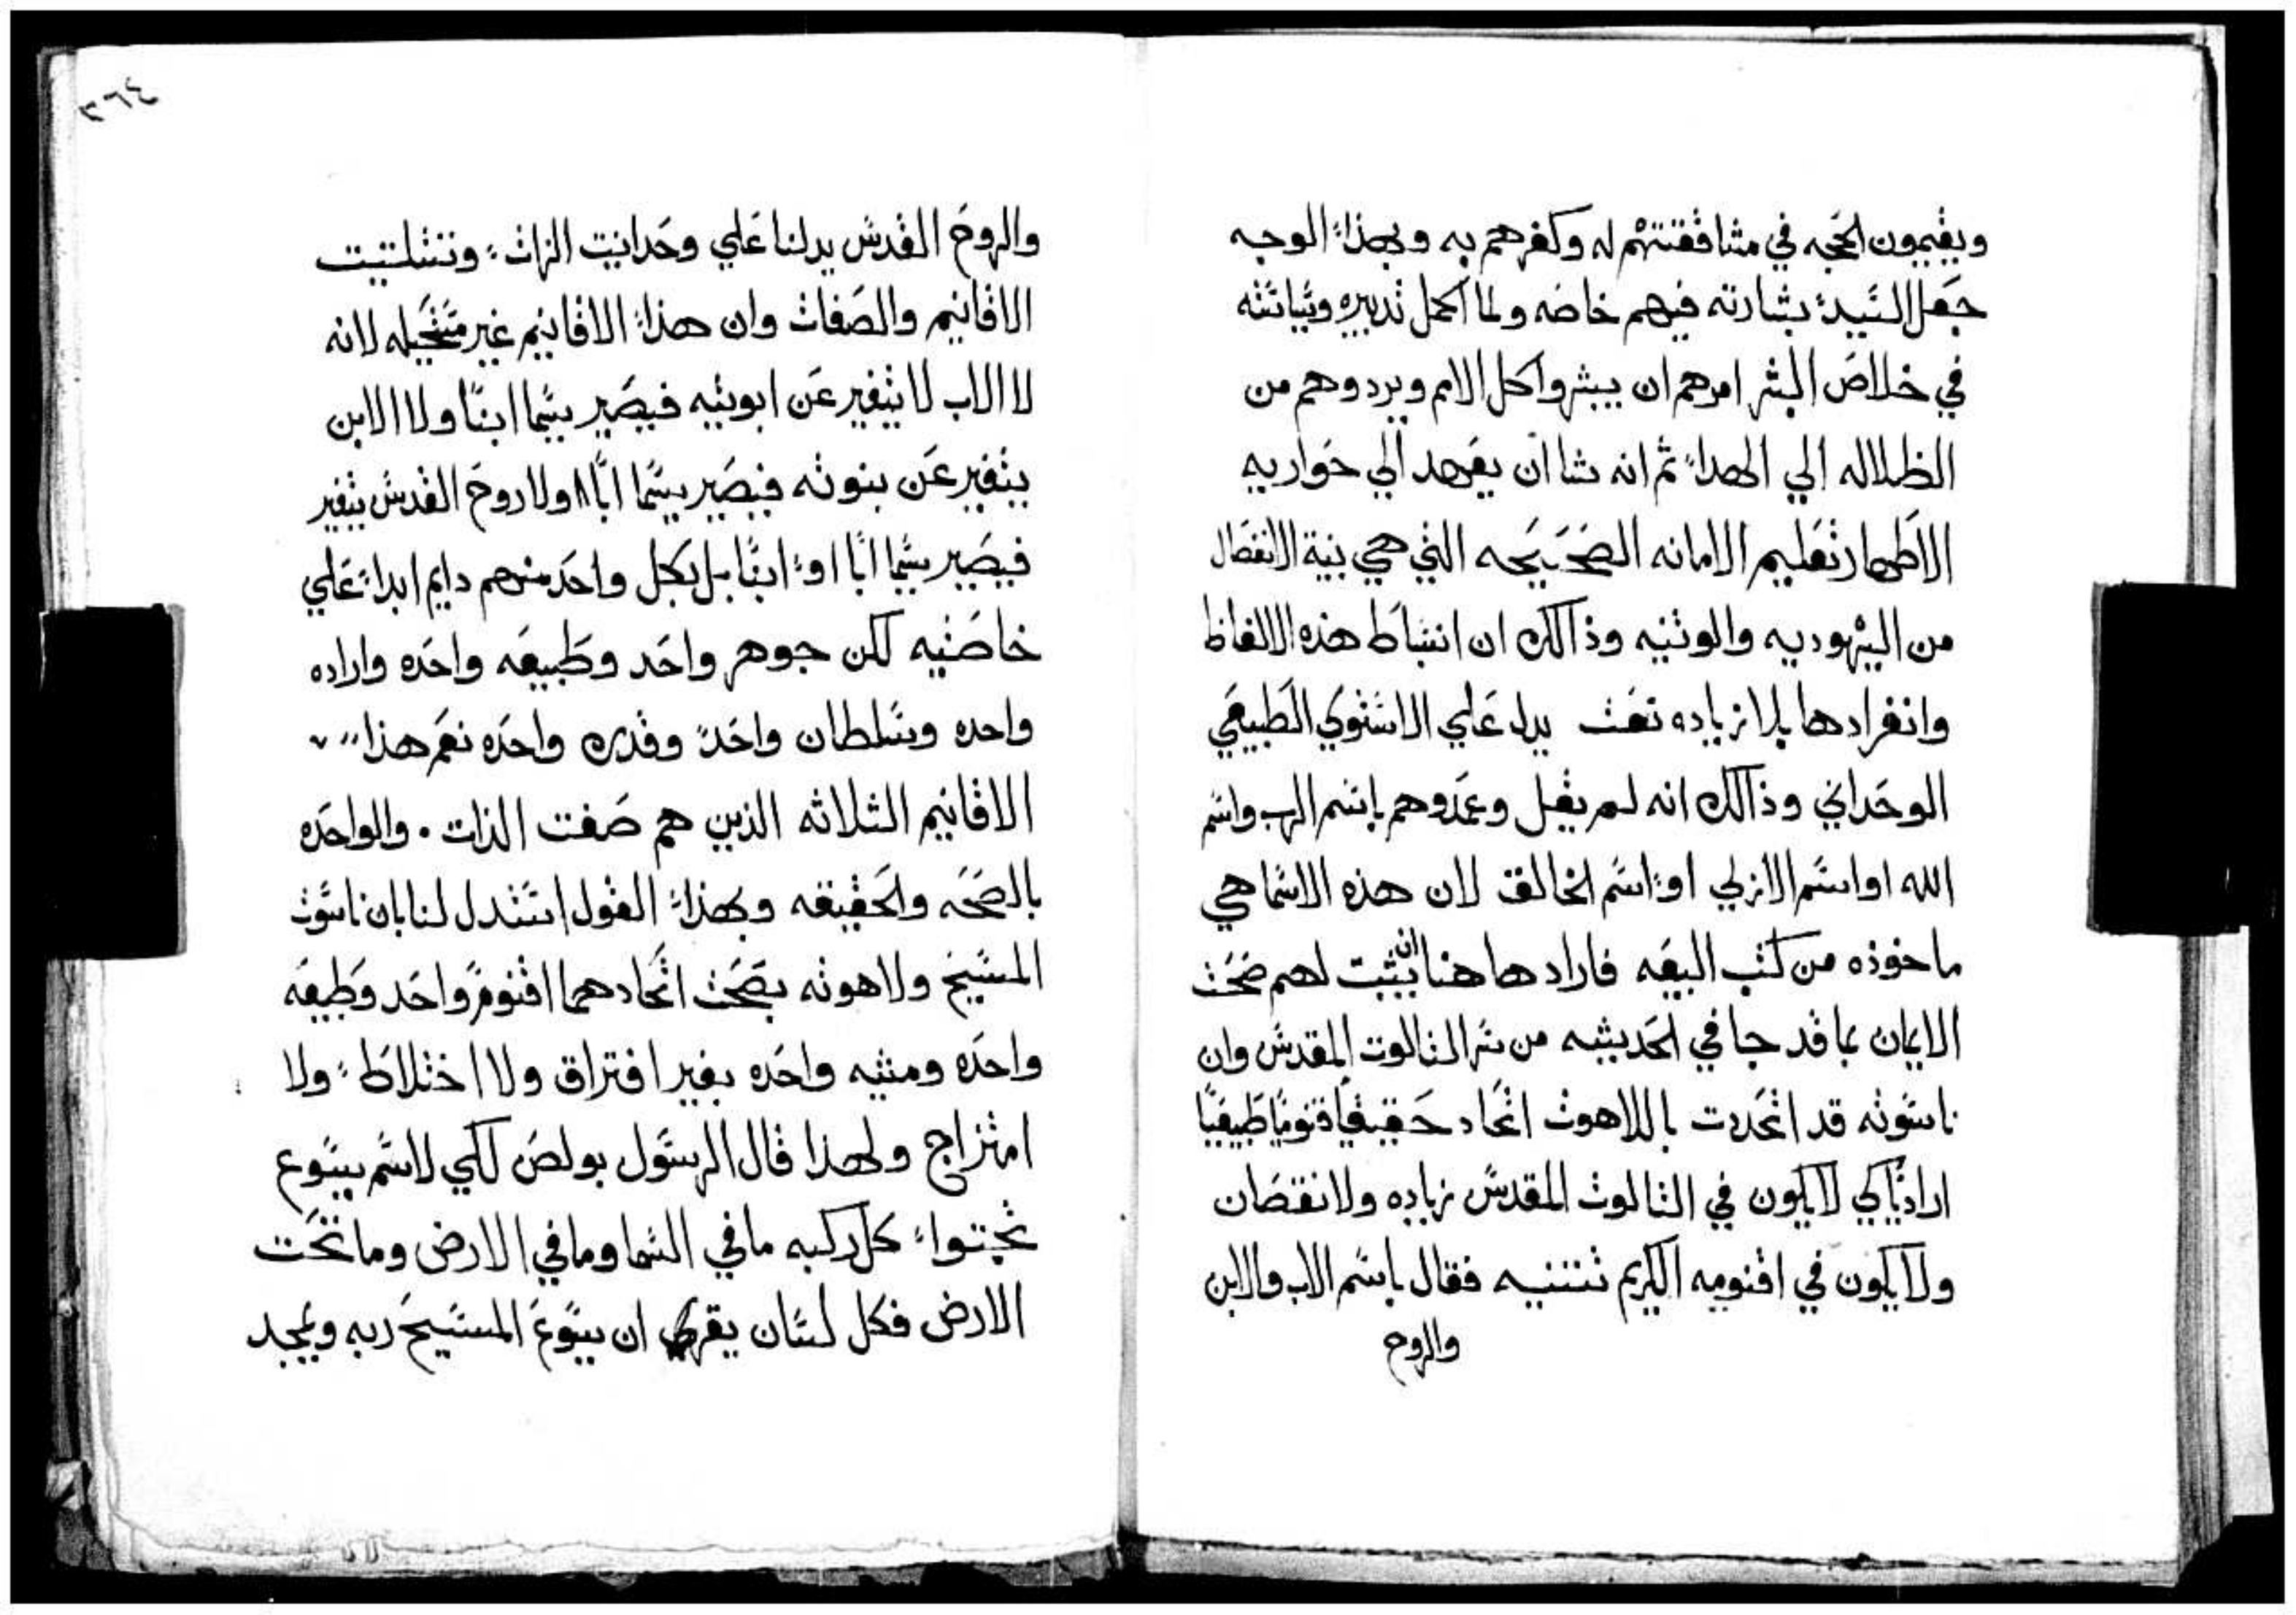 ويقيمون الحجه في مشافقتهم له وكفرهم به وبهذا الوجه
جعل السيد بشارته فيهم خاصه ولما اكمل تدبيره وسياسته
في خلاص البشر امرهم ان يبشروا كل الامم ويردوهم من
الظلاله الي الهدا ثم انه شا ان يعهد الي حواريه
الاطهار تعليم الامانه الصحيحه التي هي بنية الانفصال
من اليهوديه والوثنيه وذالك ان انبساط هذه الالفاظ
وانفرادها بلا زياده نعت يدل علي الاستوي الطبيعي
الوحداني وذالك انه لم يقل وعمدوهم باسم الرب واسم
الله او اسم الازلي او اسم الخالق لان هذه الاسما هي
ماخوذه من كتب البيعه فاراد هاهنا ان يثبت لهم صحت
الايمان بما قد جا في الحديثيه من سر الثالوت المقدس وان
ناسوته قد اتحدت باللاهوت اتحاد حقيقيا قنوميا طبيعيا
اراديا كي لا يكون في الثالوت المقدس زياده ولا نقصان
ولا يكون في اقنوميه الكريم تتنيه فقال باسم الاب والابن
والروح
٣٦٤
والروح القدس يدلنا علي وحدانيت الذات وتتليت
الاقانيم والصفات وان هذا الاقانيم غير مستحيله لانه
لا الاب لا يتغير عن ابويته فيصير يسما ابنا ولا الابن
يتغير عن بنوته فيصير يسما ابا ولا روح القدس يتغير
فيصير يسما ابا او ابنا بل بكل واحد منهم دايم ابدا علي
خاصتيه لكن جوهر واحد وطبيعه واحده واراده
واحده وسلطان واحد وقدره واحده نعم هذا
الاقانيم الثلاثه الذين هم صفت الذات . والواحده
بالصحه والحقيقه وبهذا القول استدل لنا بان ناسوت
المسيح ولاهوته بصحت اتحادهما اقنوم واحد وطبيعه
واحده ومشيه واحده بغير افتراق ولا اختلاط ولا
امتزاج ولهذا قال الرسول بولص لكي لاسم يسوع
تجتوا كل ركبه ما في السما وما في الارض وما تحت
الارض فكل لسان يقر ان يسوع المسيح ربه ويمجد